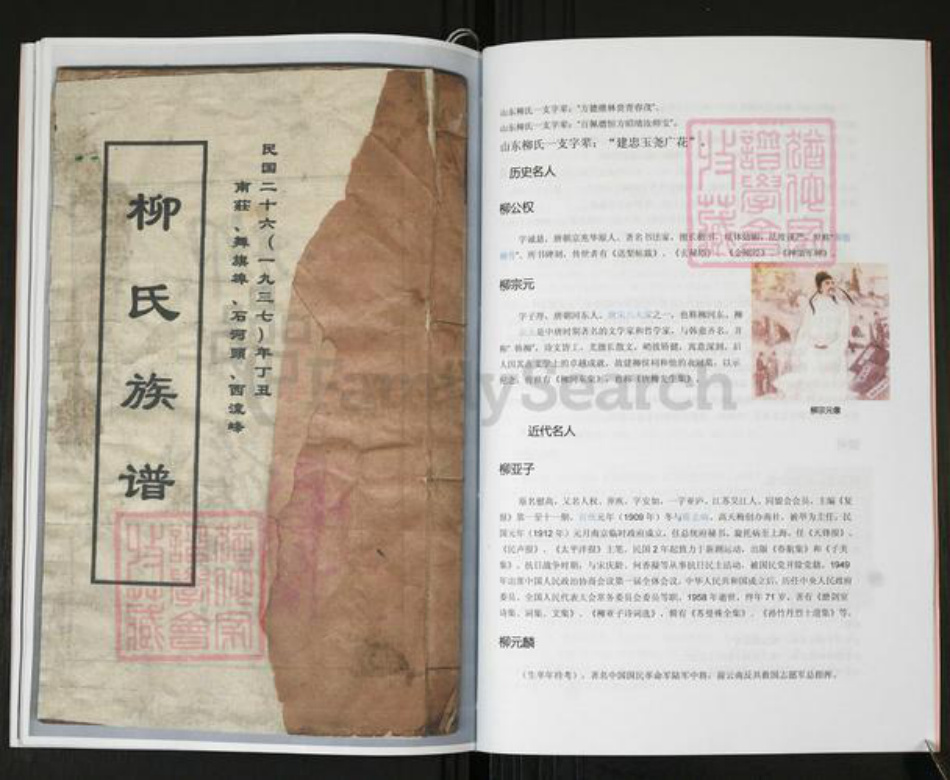 柳氏族谱
民国二十六(一九三七)年丁丑
南莊、舞旗埠、石河頭、西潼峰
山东柳氏一支字辈：
山东柳氏一支字辈：
山东柳氏一支字辈：“建忠玉尧广花”。
历史名人
柳公权
字诚悬，唐朝京兆华原人，著名书法家，
柳宗元
字子厚，唐朝河东人，唐宋八大家之一，也称柳河东，柳
是中唐时期著名的文学家和哲学家，与韩愈齐名，并
称“韩柳”，诗文皆工，尤擅长散文，峭拔矫健，寓意深刻，后
人因其在文学上的卓越成就，故建柳侯祠和他的衣冠墓，以示
纪念，著作有《柳河东集》，
柳宗元像
近代名人
柳亚子
原名慰高，又名人权、弃疾，字安如，一字亚庐，江苏吴江人，同盟会会员，主编《复
报》第一至十一期，元年（1909 年）冬与 高天梅创办南社，被举为主任，民
国元年（1912 年）元月南京临时政府成立，任总统府秘书，旋托病至上海，任《天铎报》、
《民声报》、《太平洋报》主笔，民国 2 年起致力于新剧运动，出版《春航集》和《子美
集》，抗日战争时期，与宋庆龄、何香凝等从事抗日民主活动，被国民党开除党籍，1949
年出席中国人民政治协商会议第一届全体会议，中华人民共和国成立后，历任中央人民政府
委员、全国人民代表大会常务委员会委员等职，1958 年逝世，终年 71 岁，著有《磨剑室
诗集、词集、文集》、《柳亚子诗词选》，辑有《苏曼殊全集》、《孙竹丹烈士遗集》等。
柳元麟
（生卒年待考），著名中国国民革命军陆军中将，前云南反共救国志愿军总指挥。
FamilySearch